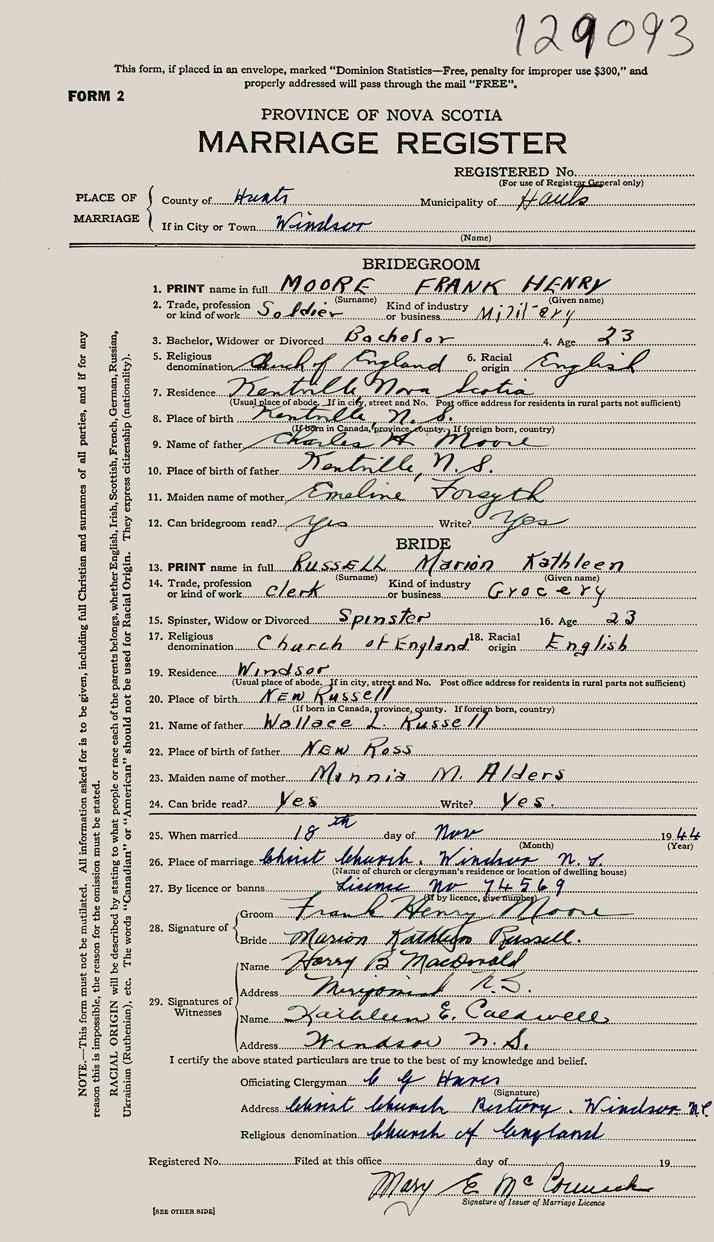 129093
This form, if placed in an envelope, marked “Dominion Statistics—Free, penalty for improper use $300,” and
properly addressed will pass through the mail “FREE”.
FORM 2
PROVINCE OF NOVA SCOTIA
MARRIAGE REGISTER
REGISTERED No.
(For use of Registrar General only)
PLACE OF MARRIAGE
County of Hants Municipality of Hants
If in City or Town Windsor
(Name)
BRIDEGROOM
1. PRINT name in full MOORE FRANK HENRY
(Surname) (Given name)
2. Trade, profession or kind of work Soldier Kind of industry or business Military
3. Bachelor, Widower or Divorced Bachelor 4. Age 23
5. Religious denomination Church of England 6. Racial origin English
7. Residence Kentville Nova Scotia
(Usual place of abode. If in city, street and No. Post office address for residents in rural parts not sufficient)
8. Place of birth Kentville, N.S.
(If born in Canada, province, county. If foreign born, country)
9. Name of father Charles H Moore
10. Place of birth of father Kentville, N.S.
11. Maiden name of mother Emeline Forsyth
12. Can bridegroom read? Yes Write? Yes
BRIDE
13. PRINT name in full RUSSELL Marion Kathleen
(Surname) (Given name)
14. Trade, profession or kind of work Clerk Kind of industry or business Grocery
15. Spinster, Widow or Divorced Spinster 16. Age 23
17. Religious denomination Church of England 18. Racial origin English
19. Residence Windsor
(Usual place of abode. If in city, street and No. Post office address for residents in rural parts not sufficient)
20. Place of birth NEW Russell
(If born in Canada, province, county. If foreign born, country)
21. Name of father Wallace L. Russell
22. Place of birth of father NEW Ross
23. Maiden name of mother Minnie M. Alders
24. Can bride read? Yes Write? Yes.
25. When married 18th day of Nov 1944
(Month) (Year)
26. Place of marriage Christ Church, Windsor N.S.
(Name of church or clergyman's residence or location of dwelling house)
27. By licence or banns License No 74569
(If by licence, give number)
28. Signature of
Groom Frank Henry Moore
Bride Marion Kathleen Russell.
29. Signatures of Witnesses
Name Harry B MacDonald
Address N.S.
Name Kathleen E. Caldwell
Address Windsor N.S.
I certify the above stated particulars are true to the best of my knowledge and belief.
Officiating Clergyman C G
(Signature)
Address Christ Church Rectory. Windsor N.S.
Religious denomination Church of England
Registered No. Filed at this office day of 19
Mary E McCormack
Signature of Issuer of Marriage Licence
[SEE OTHER SIDE]
NOTE.—This form must not be mutilated. All information asked for is to be given, including full Christian and surnames of all parties, and if for any
reason this is impossible, the reason for the omission must be stated.
RACIAL ORIGIN will be described by stating to what people or race each of the parents belongs, whether English, Irish, Scottish, French, German, Russian,
Ukrainian (Ruthenian), etc. The words “Canadian” or “American” should not be used for Racial Origin. They express citizenship (nationality).